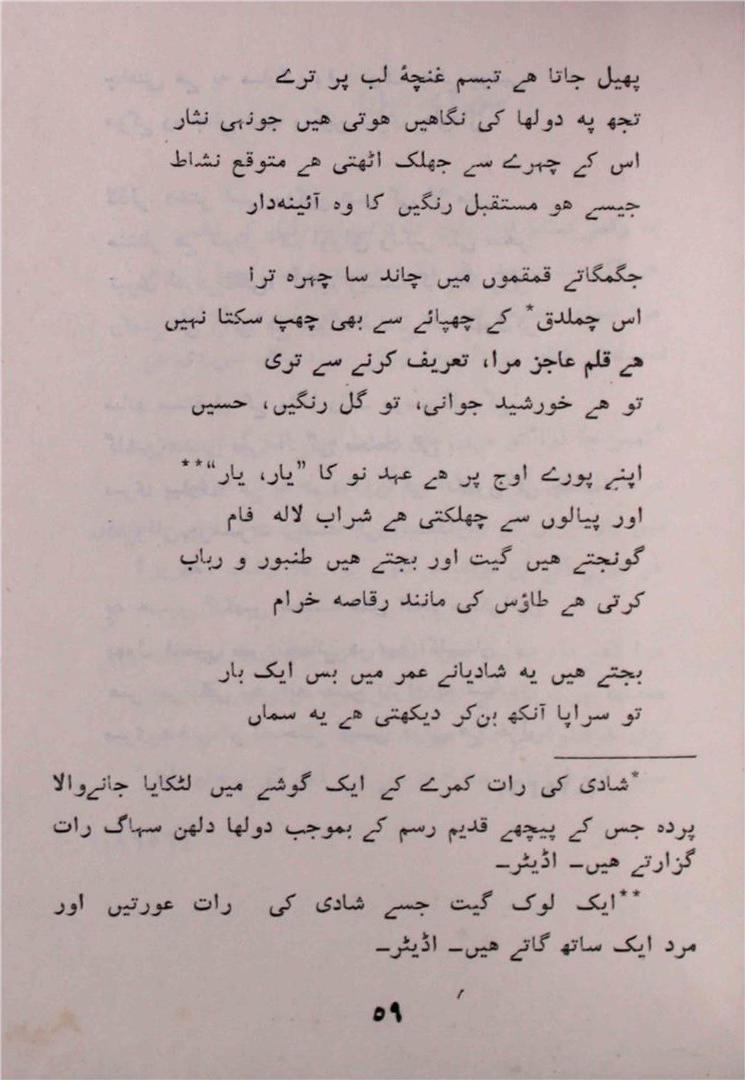 پھیل جاتا ھے تبسم غنچۂ لب پر ترے
تجھ پہ دولھا کی نگاھیں ھوتی ھیں جونہی نثار
اس کے چہرے سے جھلک اٹھتی ھے متوقع نشاط
جیسے ھو مستقبل رنگیں کا وہ آئینہ‌دار
جگمگاتے قمقموں میں چاند سا چہرہ ترا
اس چملدق* کے چھپائے سے بھی چھپ سکتا نہیں
ھے قلم عاجز مرا، تعریف کرنے سے تری
تو ھے خورشید جوانی، تو گل رنگیں، حسیں
اپنے پورے اوج پر ھے عہد نو کا ”یار، یار“**
اور پیالوں سے چھلکتی ھے شراب لالہ فام
گونجتے ھیں گیت اور بجتے ھیں طنبور و رباب
کرتی ھے طاؤس کی مانند رقاصہ خرام
بجتے ھیں یہ شادیانے عمر میں بس ایک بار
تو سراپا آنکھ بن‌کر دیکھتی ھے یہ سماں
*شادی کی رات کمرے کے ایک گوشے میں لٹکایا جانےوالا
پردہ جس کے پیچھے قدیم رسم کے بموجب دولھا دلھن سہاگ رات
گزارتے ھیں۔ اڈیٹر۔
**ایک لوک گیت جسے شادی کی رات عورتیں اور
مرد ایک ساتھ گاتے ھیں۔ اڈیٹر۔
۵۹